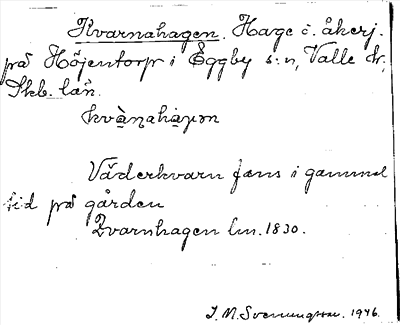 Kvarnahagen. Hage o. åkerj.
på Höjentorp i Eggby s:n, Valle hd,
Skb. län.
kvànahàgən
Väderkvarn fans i gammal
tid på gården
Qvarnhagen lm. 1830.
J. M. Svenungsson. 1946.